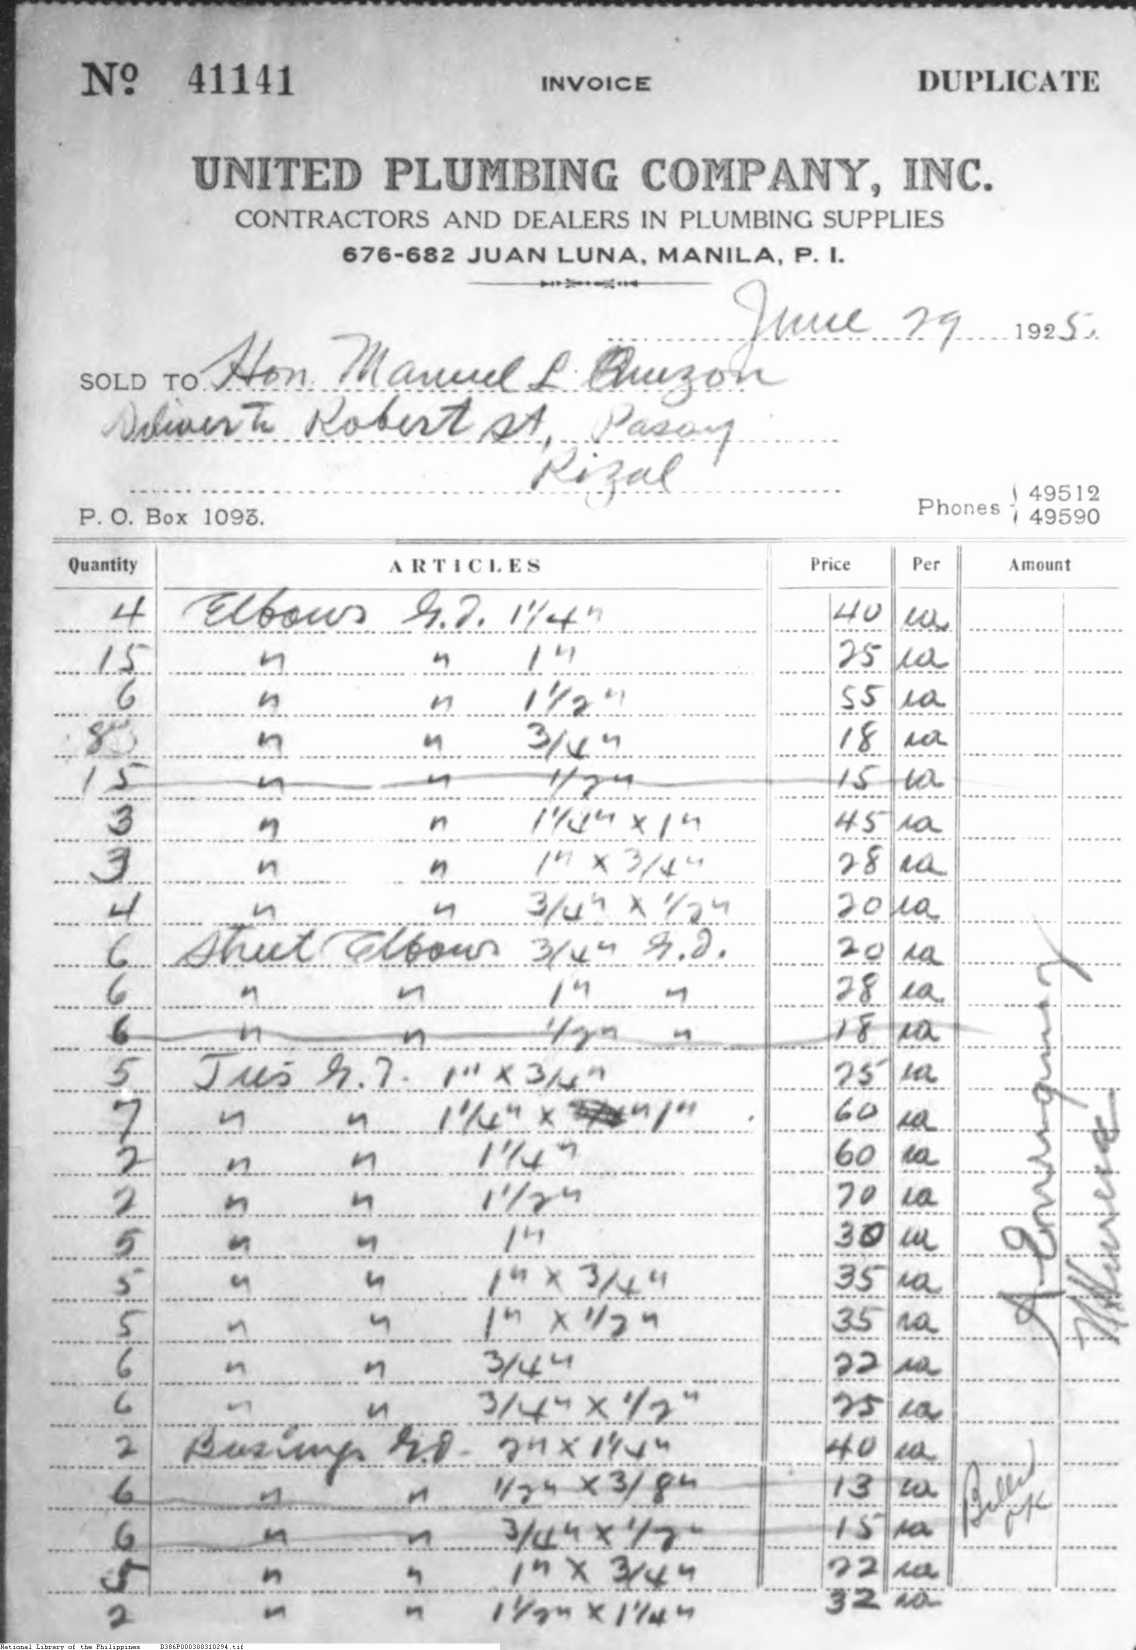 Nº 41141 INVOICE DUPLICATE
UNITED PLUMBING COMPANY, INC.
CONTRACTORS AND DEALERS IN PLUMBING SUPPLIES
676-682 JUAN LUNA, MANILA, P. I.
June 29 1925.
SOLD TO Hon. Manuel L. Quezon
Deliver to Robert St, Pasay
Rizal
P. O. Box 1093. Phones 49512
49590
Quantity ARTICLES Price Per Amount
4 Elbows G.I. 1¼" 40 ea
15 " " 1" 25 ea
6 " " 1½" 55 ea
8 " " 3/4" 18 ea
15 " " 1/2" 15 ea
3 " " 1¼" x 1" 45 ea
3 " " 1" x 3/4" 28 ea
4 " " 3/4" x 1/2" 20 ea
6 Street Elbows 3/4" G.I. 20 ea
6 " " 1" " 28 ea
6 " " 1/2" " 18 ea
5 Tees G.I. 1" x 3/4" 25 ea
7 " " 1¼" x 1" 60 ea
2 " " 1¼" 60 ea
2 " " 1½" 70 ea
5 " " 1" 30 ea
5 " " 1" x 3/4" 35 ea
5 " " 1" x 1/2" 35 ea
6 " " 3/4" 22 ea
6 " " 3/4" x 1/2" 25 ea
2 Busings G.I. 2" x 1¼" 40 ea
6 " " 1/2" x 3/8" 13 ea
6 " " 3/4" x 1/2" 15 ea
5 " " 1" x 3/4" 22 ea
2 " " 1½" x 1¼" 32 ea
Billed
OK
National Library of the Philippines B386P000308310294.tif